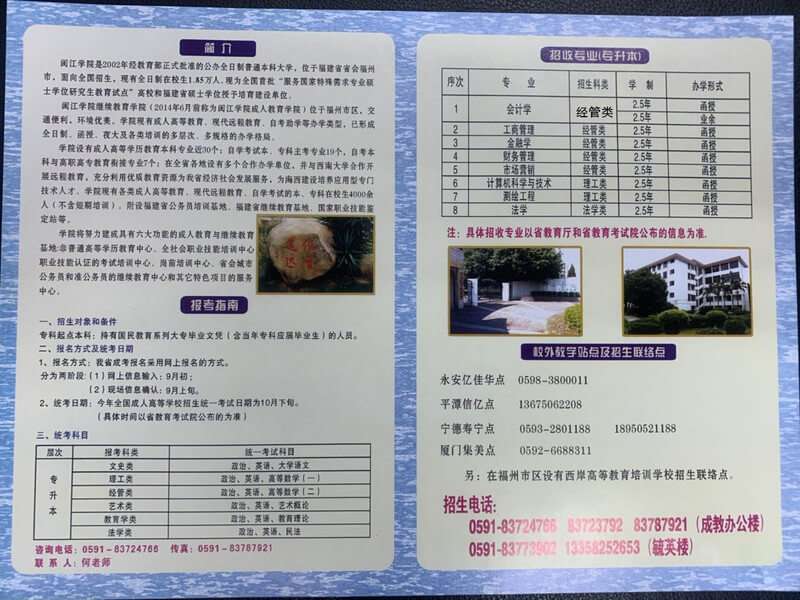 简介
闽江学院是2002年经教育部正式批准的公办全日制普通本科大学，位于福建省省会福州
市，面向全国招生，现有全日制在校生1.85万人，现为全国首批“服务国家特殊需求专业硕
士学位研究生教育试点”高校和福建省硕士学位授予培育建设单位。
闽江学院继续教育学院（2014年6月前称为闽江学院成人教育学院）位于福州市区，交
通便利，环境优美。学院现有成人高等教育、现代远程教育、自考助学等办学类型，已形成
全日制、函授、夜大及各类培训的多层次、多规格的办学格局。
学院设有成人高等学历教育本科专业近30个；自学考试本、专科主考专业19个，自考本
科与高职高专教育衔接专业7个；在全省各地设有多个合作办学单位，并与西南大学合作开
展远程教育，充分利用优质教育资源为我省经济社会发展服务，为海西建设培养应用型专门
技术人才。学院现有各类成人高等教育、现代远程教育、自学考试的本、专科在校生4000余
人（不含短期培训）。附设福建省公务员培训基地、福建省继续教育基地、国家职业技能鉴
定站等。
学院将努力建成具有六大功能的成人教育与继续教育
基地:非普通高等学历教育中心、全社会职业技能培训中心、
职业技能认证的考试培训中心、岗前培训中心、省会城市
公务员和准公务员的继续教育中心和其它特色项目的服务
中心。
报考指南
一、招生对象和条件
专科起点本科：持有国民教育系列大专毕业文凭（含当年专科应届毕业生）的人员。
二、报名方式及统考日期
1、报名方式：我省成考报名采用网上报名的方式。
分为两阶段：（1）网上信息输入：9月初；
（2）现场信息确认：9月上旬。
2、统考日期：今年全国成人高等学校招生统一考试日期为10月下旬。
（具体时间以省教育考试院公布的为准）
三、统考科目
层次 报考科类 统一考试科目
专升本
文史类 政治、英语、大学语文
理工类 政治、英语、高等数学（一）
经管类 政治、英语、高等数学（二）
艺术类 政治、英语、艺术概论
教育学类 政治、英语、教育理论
法学类 政治、英语、民法
咨询电话：0591-83724766 传真：0591-83787921
联系人：何老师
招收专业(专升本)
序次 专业 招生科类 学制 办学形式
1 会计学 经管类 2.5年 函授
2.5年 业余
2 工商管理 经管类 2.5年 函授
3 金融学 经管类 2.5年 函授
4 财务管理 经管类 2.5年 函授
5 市场营销 经管类 2.5年 函授
6 计算机科学与技术 理工类 2.5年 函授
7 测绘工程 理工类 2.5年 函授
8 法学 法学类 2.5年 函授
注：具体招收专业以省教育厅和省教育考试院公布的信息为准.
校外教学站点及招生联络点
永安亿佳华点 0598-3800011
平潭信亿点 13675062208
宁德寿宁点 0593-2801188 18950521188
厦门集美点 0592-6688311
另：在福州市区设有西岸高等教育培训学校招生联络点。
招生电话:
0591-83724766 83723792 83787921（成教办公楼）
0591-83773902 13358252653（毓英楼）